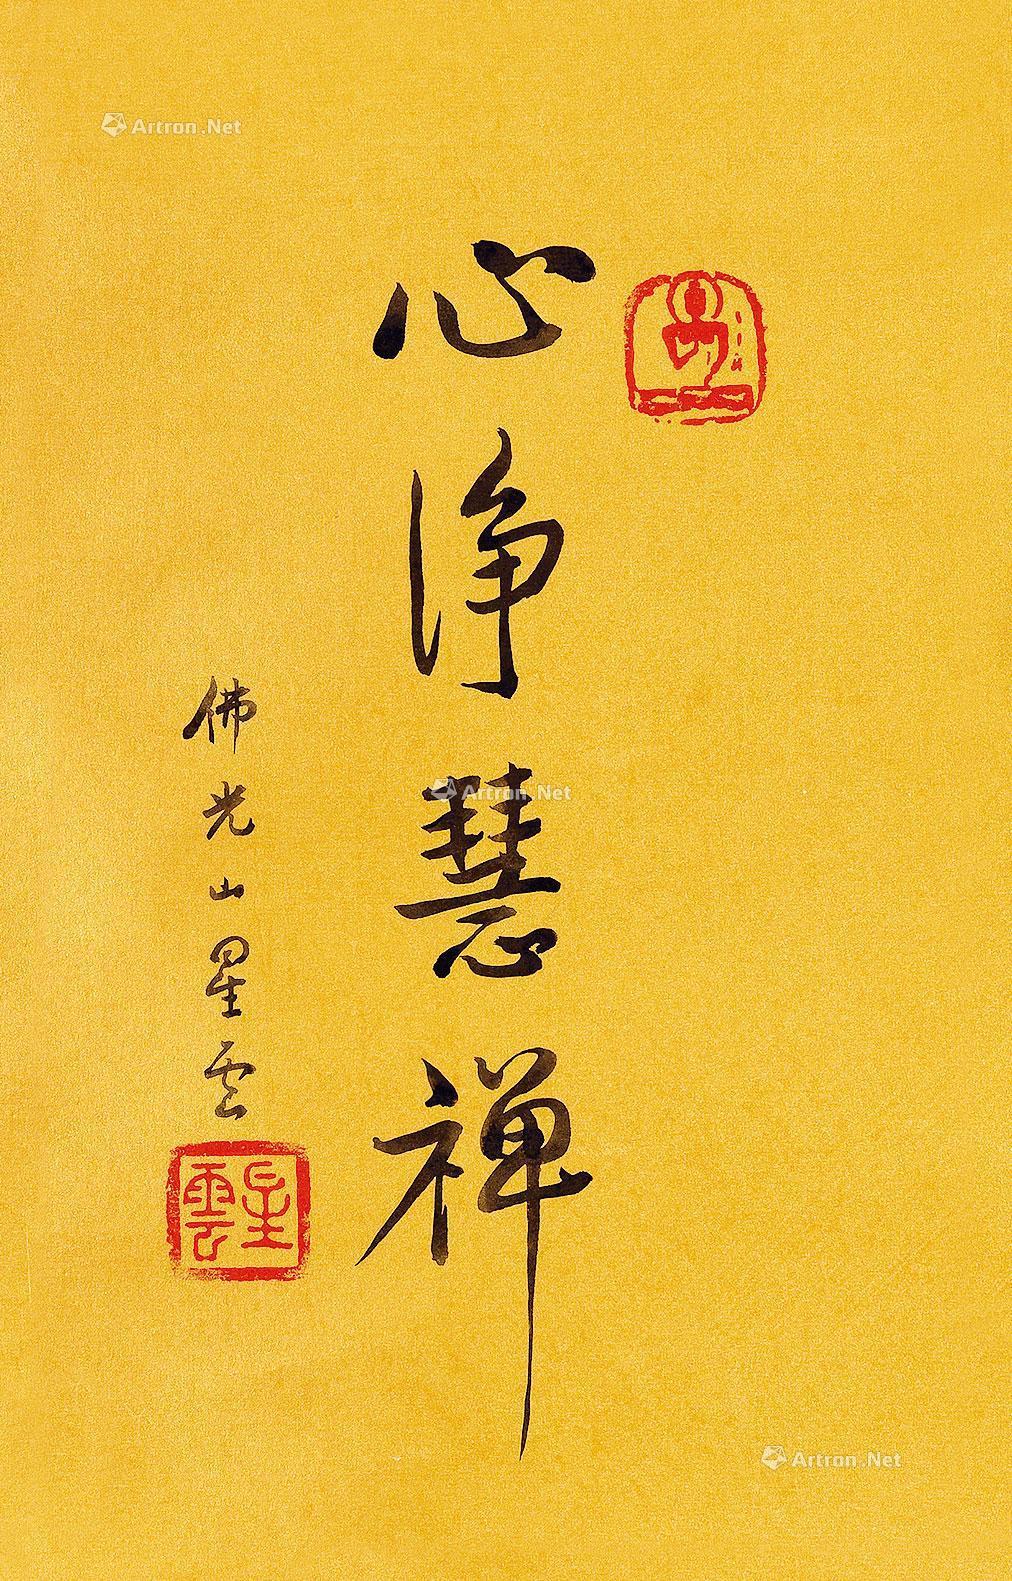 心净慧禅
佛光山星云
星雲
Artron.Net
Artron.Net
Artron.Net